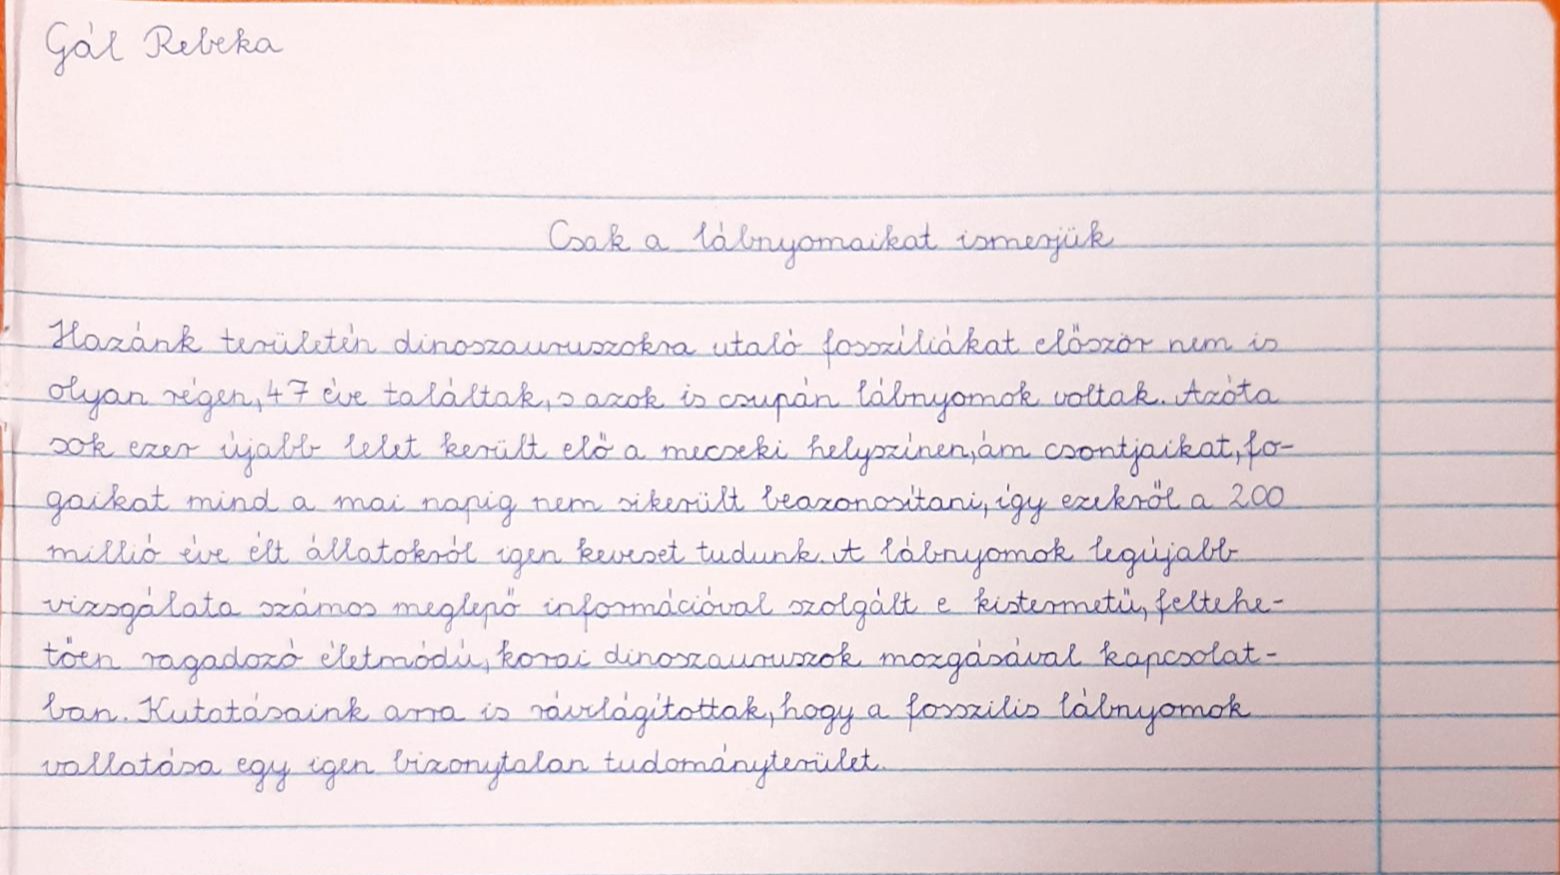 Gál Rebeka
Csak a lábnyomaikat ismerjük
Hazánk területén dinoszauruszokra utaló fosszíliákat először nem is
olyan régen, 47 éve találtak, s azok is csupán lábnyomok voltak. Azóta
sok ezer újabb lelet került elő a mecseki helyszínen, ám csontjaikat, fo-
gaikat mind a mai napig nem sikerült beazonosítani, így ezekről a 200
millió éve élt állatokról igen keveset tudunk. A lábnyomok legújabb
vizsgálata számos meglepő információval szolgált e kistermetű, feltehe-
tően ragadozó életmódú, korai dinoszauruszok mozgásával kapcsolat-
ban. Kutatásaink arra is rávilágítottak, hogy a fosszilis lábnyomok
vallatása egy igen bizonytalan tudományterület.